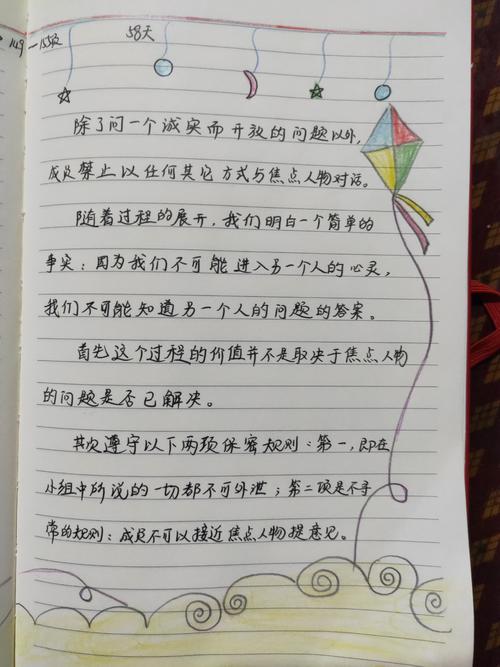 149-155页 58天
除了问一个诚实而开放的问题以外,
成员禁止以任何其它方式与焦点人物对话。
随着过程的展开,我们明白一个简单的
事实:因为我们不可能进入另一个人的心灵,
我们不可能知道另一个人的问题的答案。
首先这个过程的价值并不是取决于焦点人物
的问题是否已解决。
其次遵守以下两项保密规则:第一,即在
小组中所说的一切都不可外泄;第二项是不寻
常的规则:成员不可以接近焦点人物提意见。